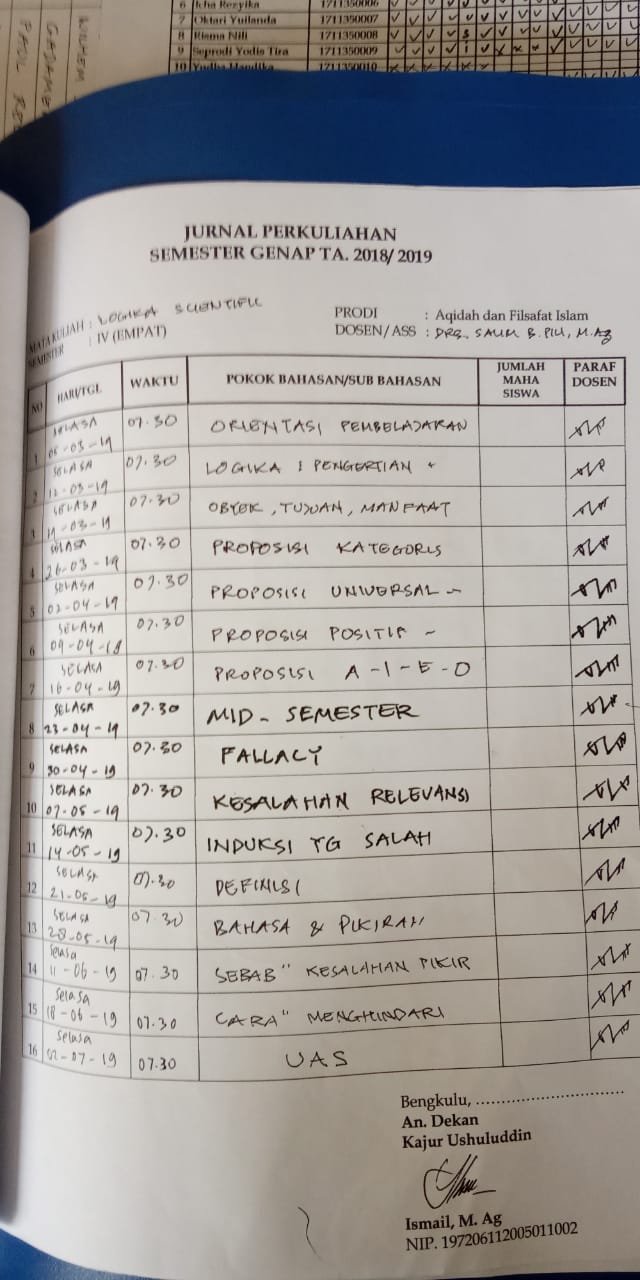 6 Icha Rezyika 1711350006
7 Oktari Yuilanda 1711350007
8 Risma Nili 1711350008
9 Seprodi Yodis Tira 1711350009
10 Yudha Mandika 1711350010
JURNAL PERKULIAHAN
SEMESTER GENAP TA. 2018/ 2019
MATA KULIAH : LOGIKA SCIENTIFIC
SEMESTER : IV (EMPAT)
PRODI : Aqidah dan Filsafat Islam
DOSEN/ ASS : DRS. SALIM B. PILI, M.Ag
NO HARI/TGL WAKTU POKOK BAHASAN/SUB BAHASAN JUMLAH MAHA SISWA PARAF DOSEN
1 SELASA 05-03-19 07.30 ORIENTASI PEMBELAJARAN
2 SELASA 12-03-19 07.30 LOGIKA : PENGERTIAN
3 SELASA 19-03-19 07.30 OBYEK, TUJUAN, MANFAAT
4 SELASA 26-03-19 07.30 PROPOSISI KATEGORIS
5 SELASA 02-04-19 07.30 PROPOSISI UNIVERSAL -
6 SELASA 09-04-19 07.30 PROPOSISI POSITIF -
7 SELASA 16-04-19 07.30 PROPOSISI A-I-E-O
8 SELASA 23-04-19 07.30 MID- SEMESTER
9 SELASA 30-04-19 07.30 FALLACY
10 SELASA 07-05-19 07.30 KESALAHAN RELEVANSI
11 SELASA 14-05-19 07.30 INDUKSI YG SALAH
12 SELASA 21-05-19 07.30 DEFINISI
13 SELASA 28-05-19 07.30 BAHASA & PIKIRAN
14 Selasa 11-06-19 07.30 SEBAB" KESALAHAN PIKIR
15 Selasa 18-06-19 07.30 CARA" MENGHINDARI
16 Selasa 02-07-19 07.30 UAS
Bengkulu, ..............................
An. Dekan
Kajur Ushuluddin
Ismail, M. Ag
NIP. 197206112005011002